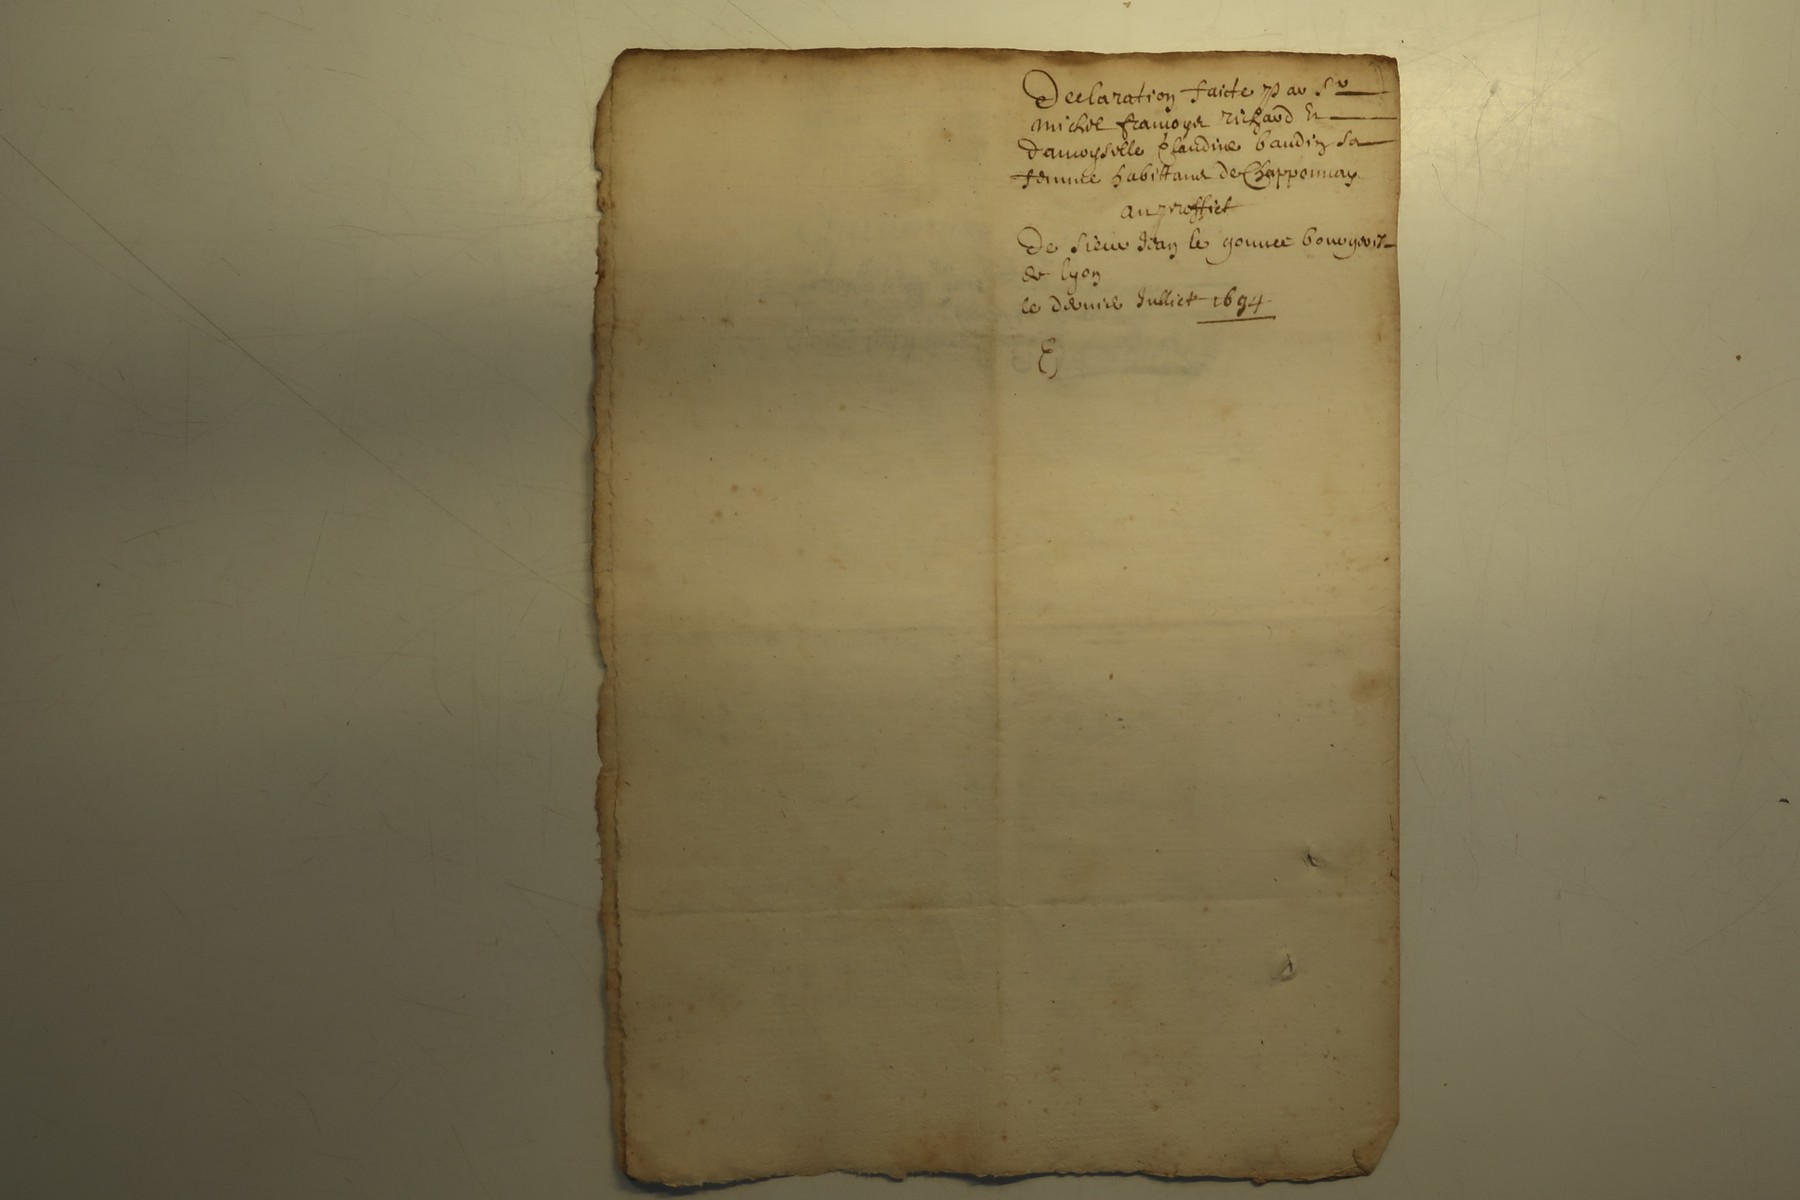 Declaration faicte par Sr
michel françoys richard Et
damoyselle Claudine baudin sa
femme habittans de Chapponnay
au proffict
De sieur Jean le gouvee bourgeois
de lyon
le dernier Julliet 1694
E